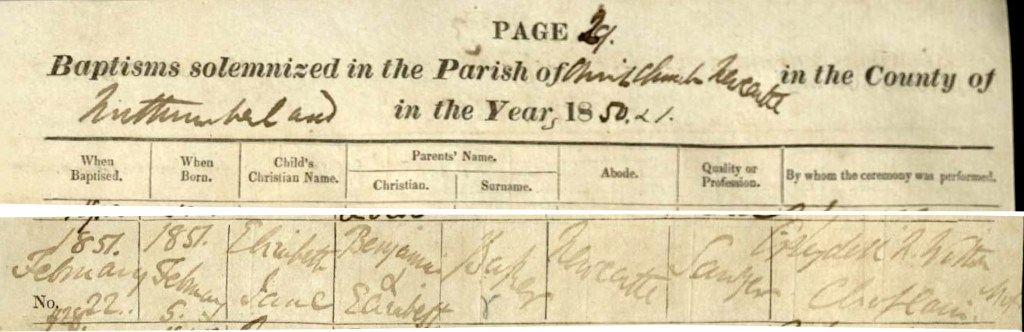 PAGE 29.
Baptisms solemnized in the Parish of Christ Church Newcastle in the County of
Northumberland in the Year, 1850, 51.
When Baptised. When Born. Child's Christian Name. Parents' Name. Christian. Surname. Abode. Quality or Profession. By whom the ceremony was performed.
1851. 1851. Elizabeth Benjamin Baker Newcastle Sawyer
February February Jane & Elizabeth Chaplain
No. 22. 5.